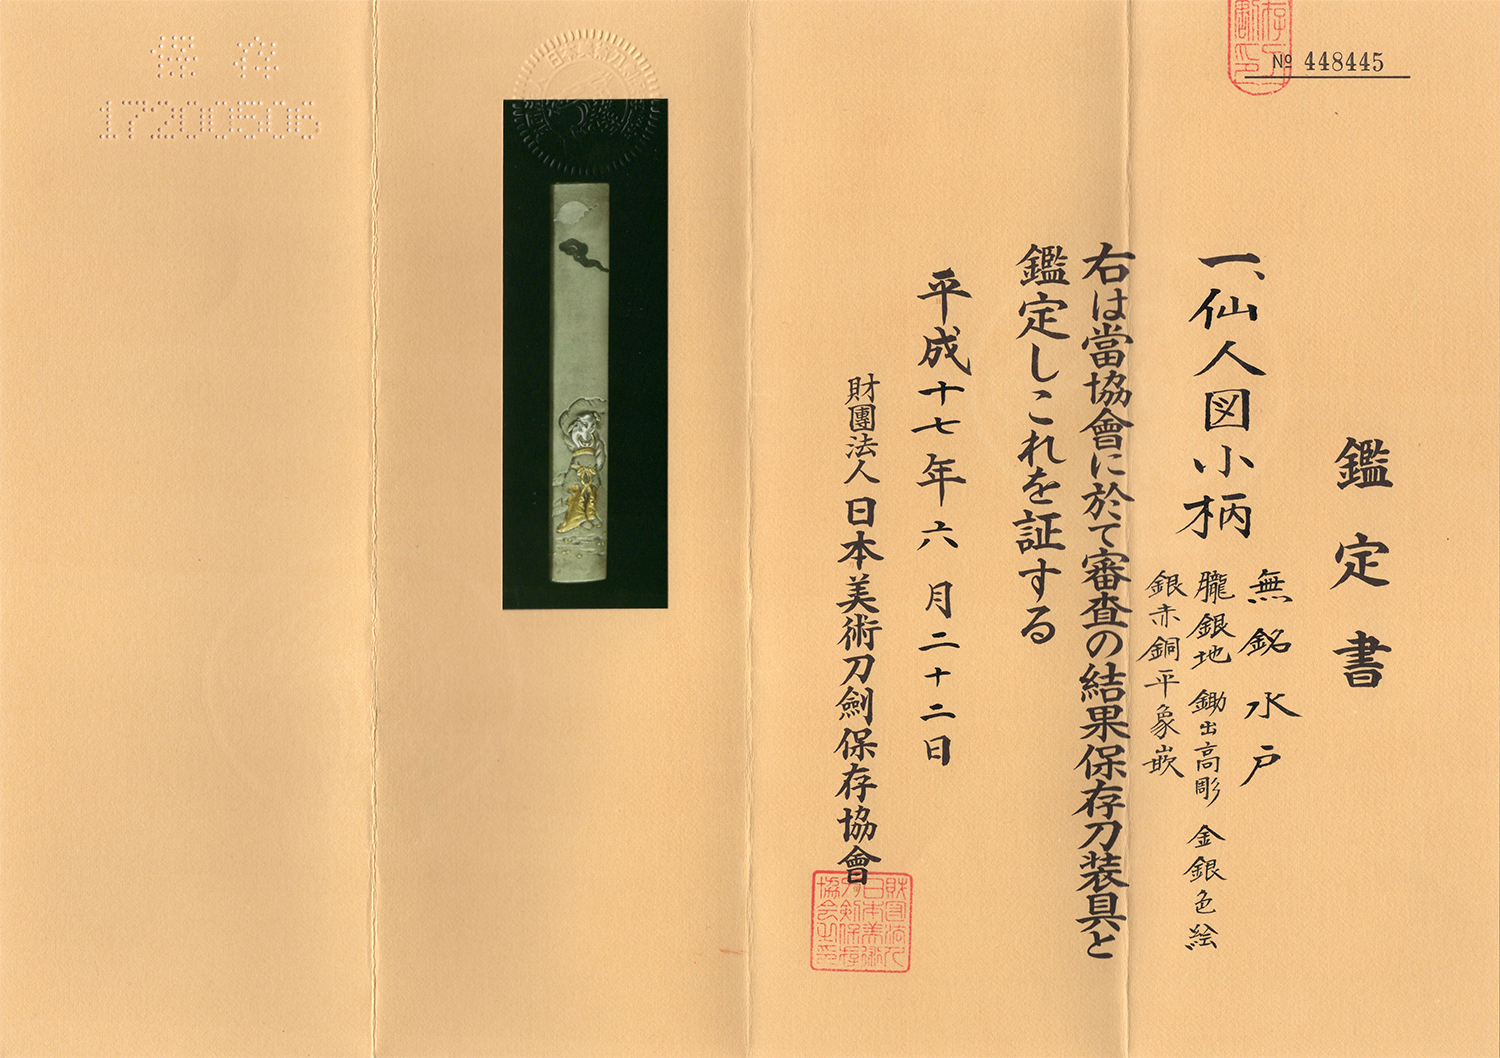 № 448445
鑑定書
一、仙人図小柄
無銘 水戸
朧銀地 鋤出高彫 金銀色絵
銀赤銅平象嵌
右は當協會に於て審査の結果保存刀装具と
鑑定しこれを証する
平成十七年六月二十二日
財團法人 日本美術刀劍保存協會
保存
17200506